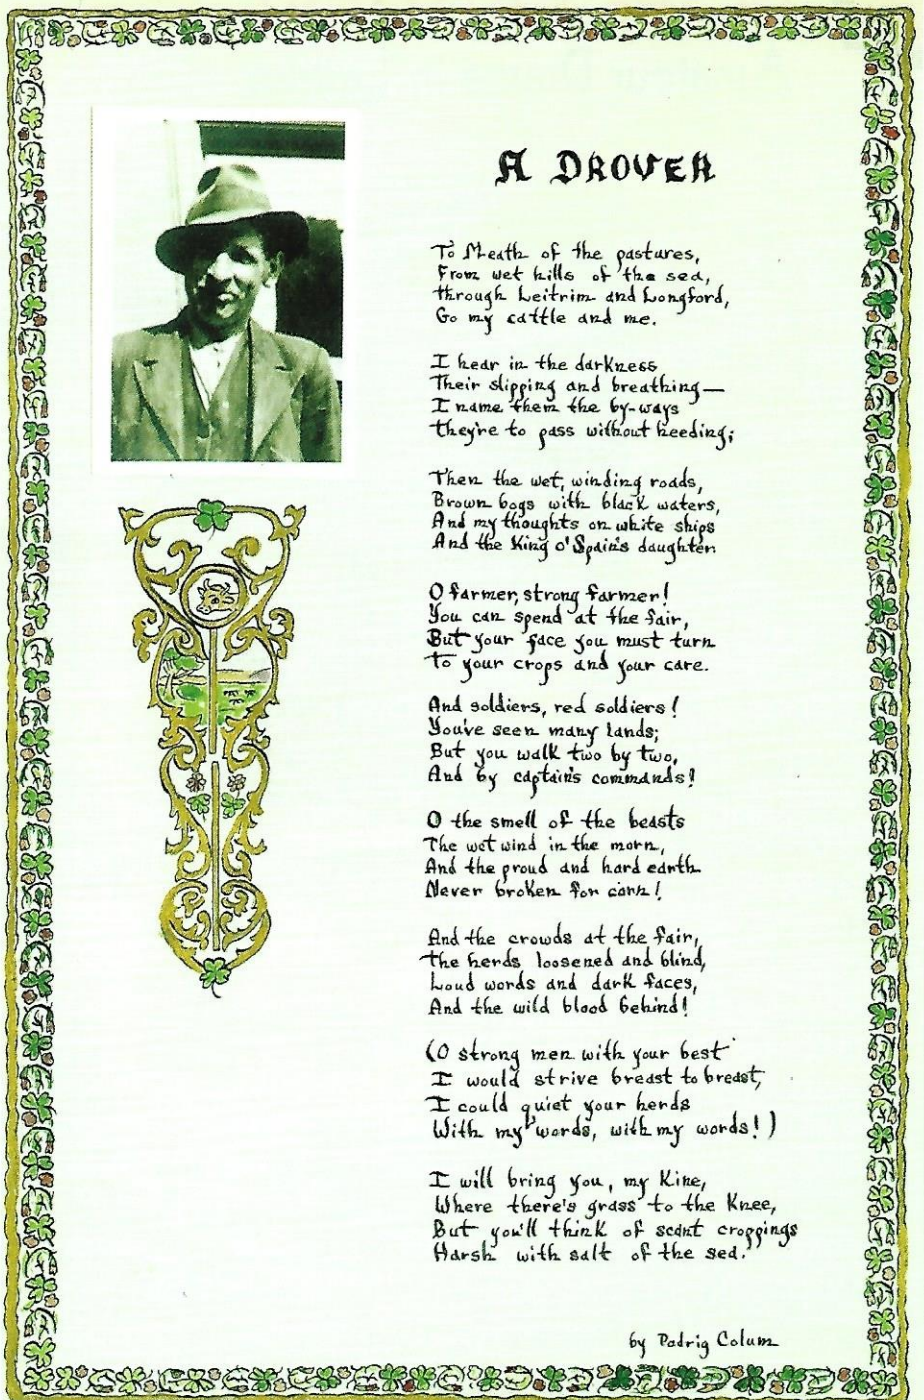 A DROVER
To Meath of the pastures,
From wet hills of the sea,
through Leitrim and Longford,
Go my cattle and me.
I hear in the darkness
Their slipping and breathing—
I name them the by-ways
they're to pass without heeding;
Then the wet, winding roads,
Brown bogs with black waters,
And my thoughts on white ships
And the King o' Spain's daughter.
O farmer, strong farmer!
You can spend at the fair,
But your face you must turn
to your crops and your care.
And soldiers, red soldiers!
You've seen many lands;
But you walk two by two,
And by captain's commands!
O the smell of the beasts
The wet wind in the morn,
And the proud and hard earth
Never broken for corn!
And the crowds at the fair,
the herds loosened and blind,
Loud words and dark faces,
And the wild blood behind!
(O strong men with your best
I would strive breast to breast,
I could quiet your herds
With my words, with my words!)
I will bring you, my Kine,
Where there's grass to the Knee,
But you'll think of scant croppings
Harsh with salt of the sea.
by Padrig Colum